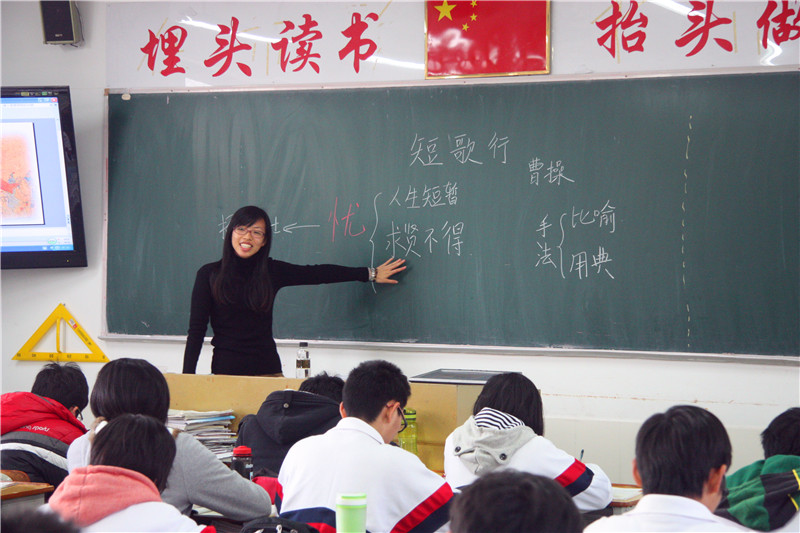 埋头读书
抬头做
短歌行
曹操
忧
人生短暂
求贤不得
手法
比喻
用典